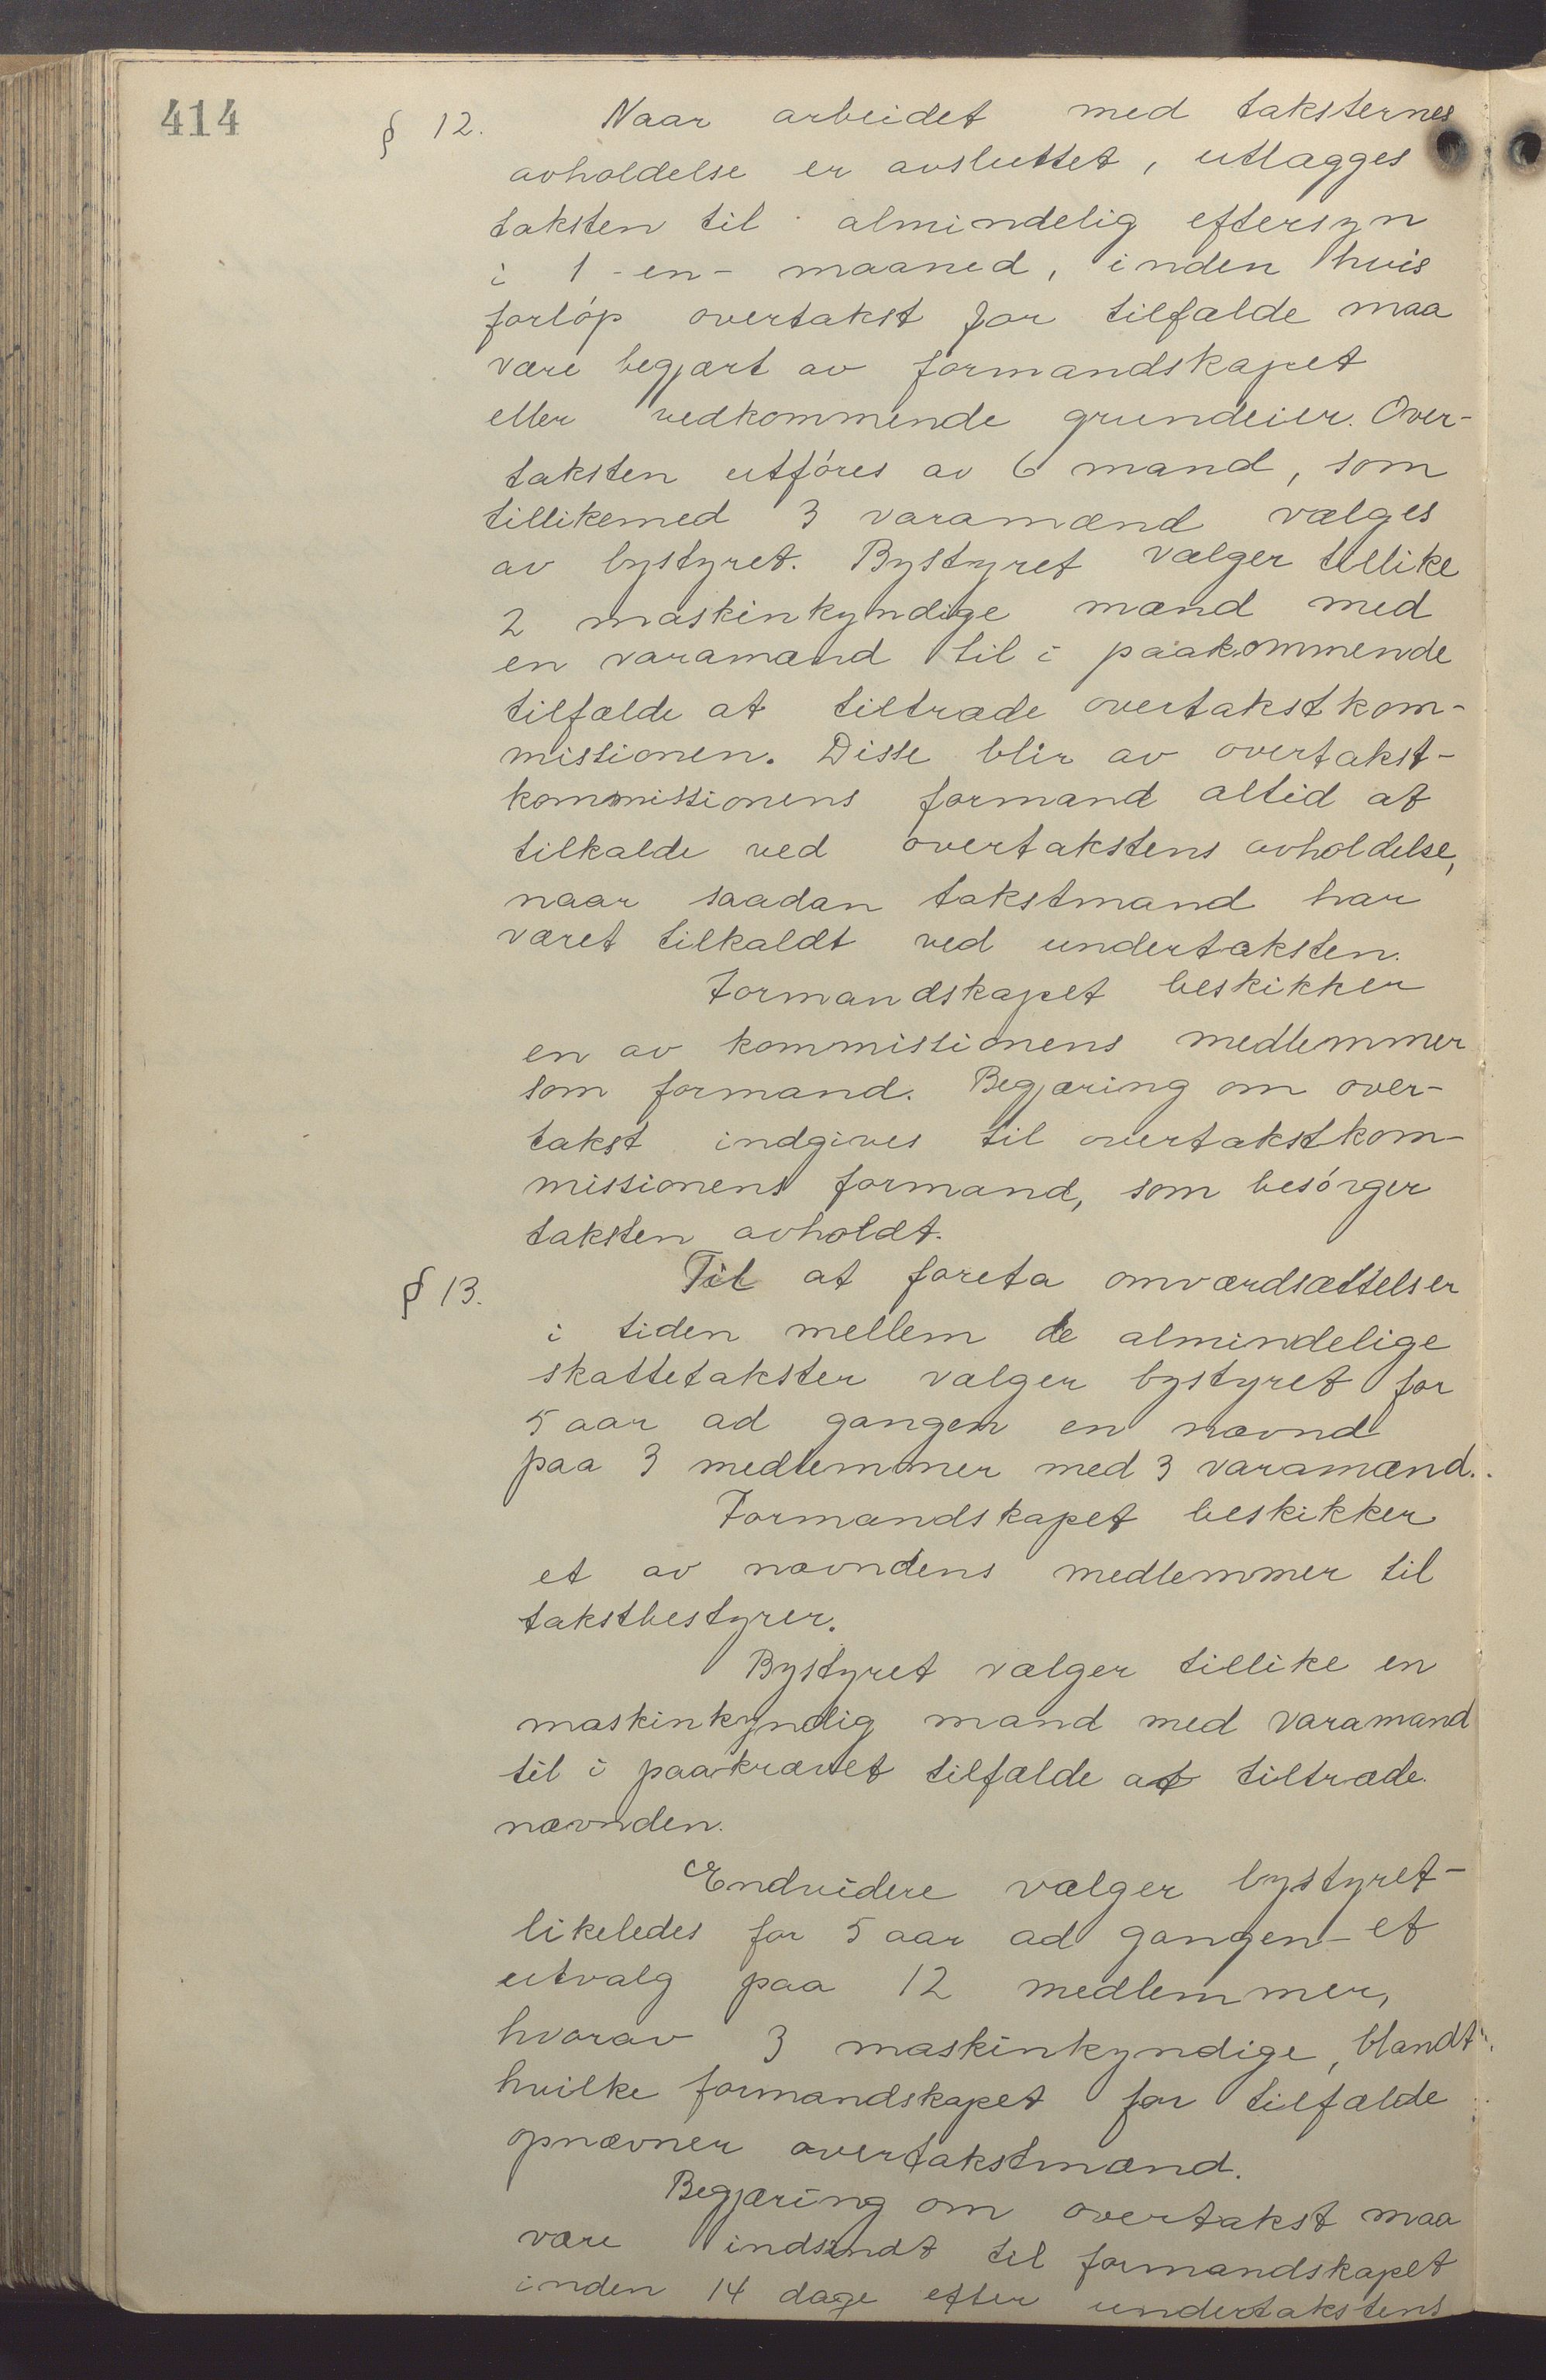 414
§ 12. Naar arbeidet med taksternes
avholdelse er avsluttet, utlægges
taksten til almindelig eftersyn
i 1 -en- maaned, inden hvis
forløp overtakst for tilfælde maa
være begjært av formandskapet
eller vedkommende grundeier. Over-
taksten utføres av 6 mænd, som
tillikemed 3 varamænd vælges
av bystyret. Bystyret vælger tillike
2 maskinkyndige mænd med
en varamand til i paakommende
tilfælde at tiltræde overtakstkom-
missionen. Disse blir av overtakst-
kommissionens formand altid at
tilkalde ved overtakstens avholdelse,
naar saadan takstmand har
været tilkaldt ved undertaksten.
Formandskapet beskikker
en av kommissionens medlemmer
som formand. Begjæring om over-
takst indgives til overtakstkom-
missionens formand, som besørger
taksten avholdt.
§ 13. Til at foreta omværdsættelser
i tiden mellem de almindelige
skattetakster vælger bystyret for
5 aar ad gangen en nævnd
paa 3 medlemmer med 3 varamænd.
Formandskapet beskikker
et av nævndens medlemmer til
takstbestyrer.
Bystyret vælger tillike en
maskinkyndig mand med varamand
til i paakrævet tilfælde at tiltræde
nævnden.
Endvidere vælger bystyret-
likeledes for 5 aar ad gangen- et
utvalg paa 12 medlemmer,
hvorav 3 maskinkyndige, blandt
hvilke formandskapet for tilfælde
opnævner overtakstmænd.
Begjæring om overtakst maa
være indsendt til formandskapet
inden 14 dage efter undertakstens